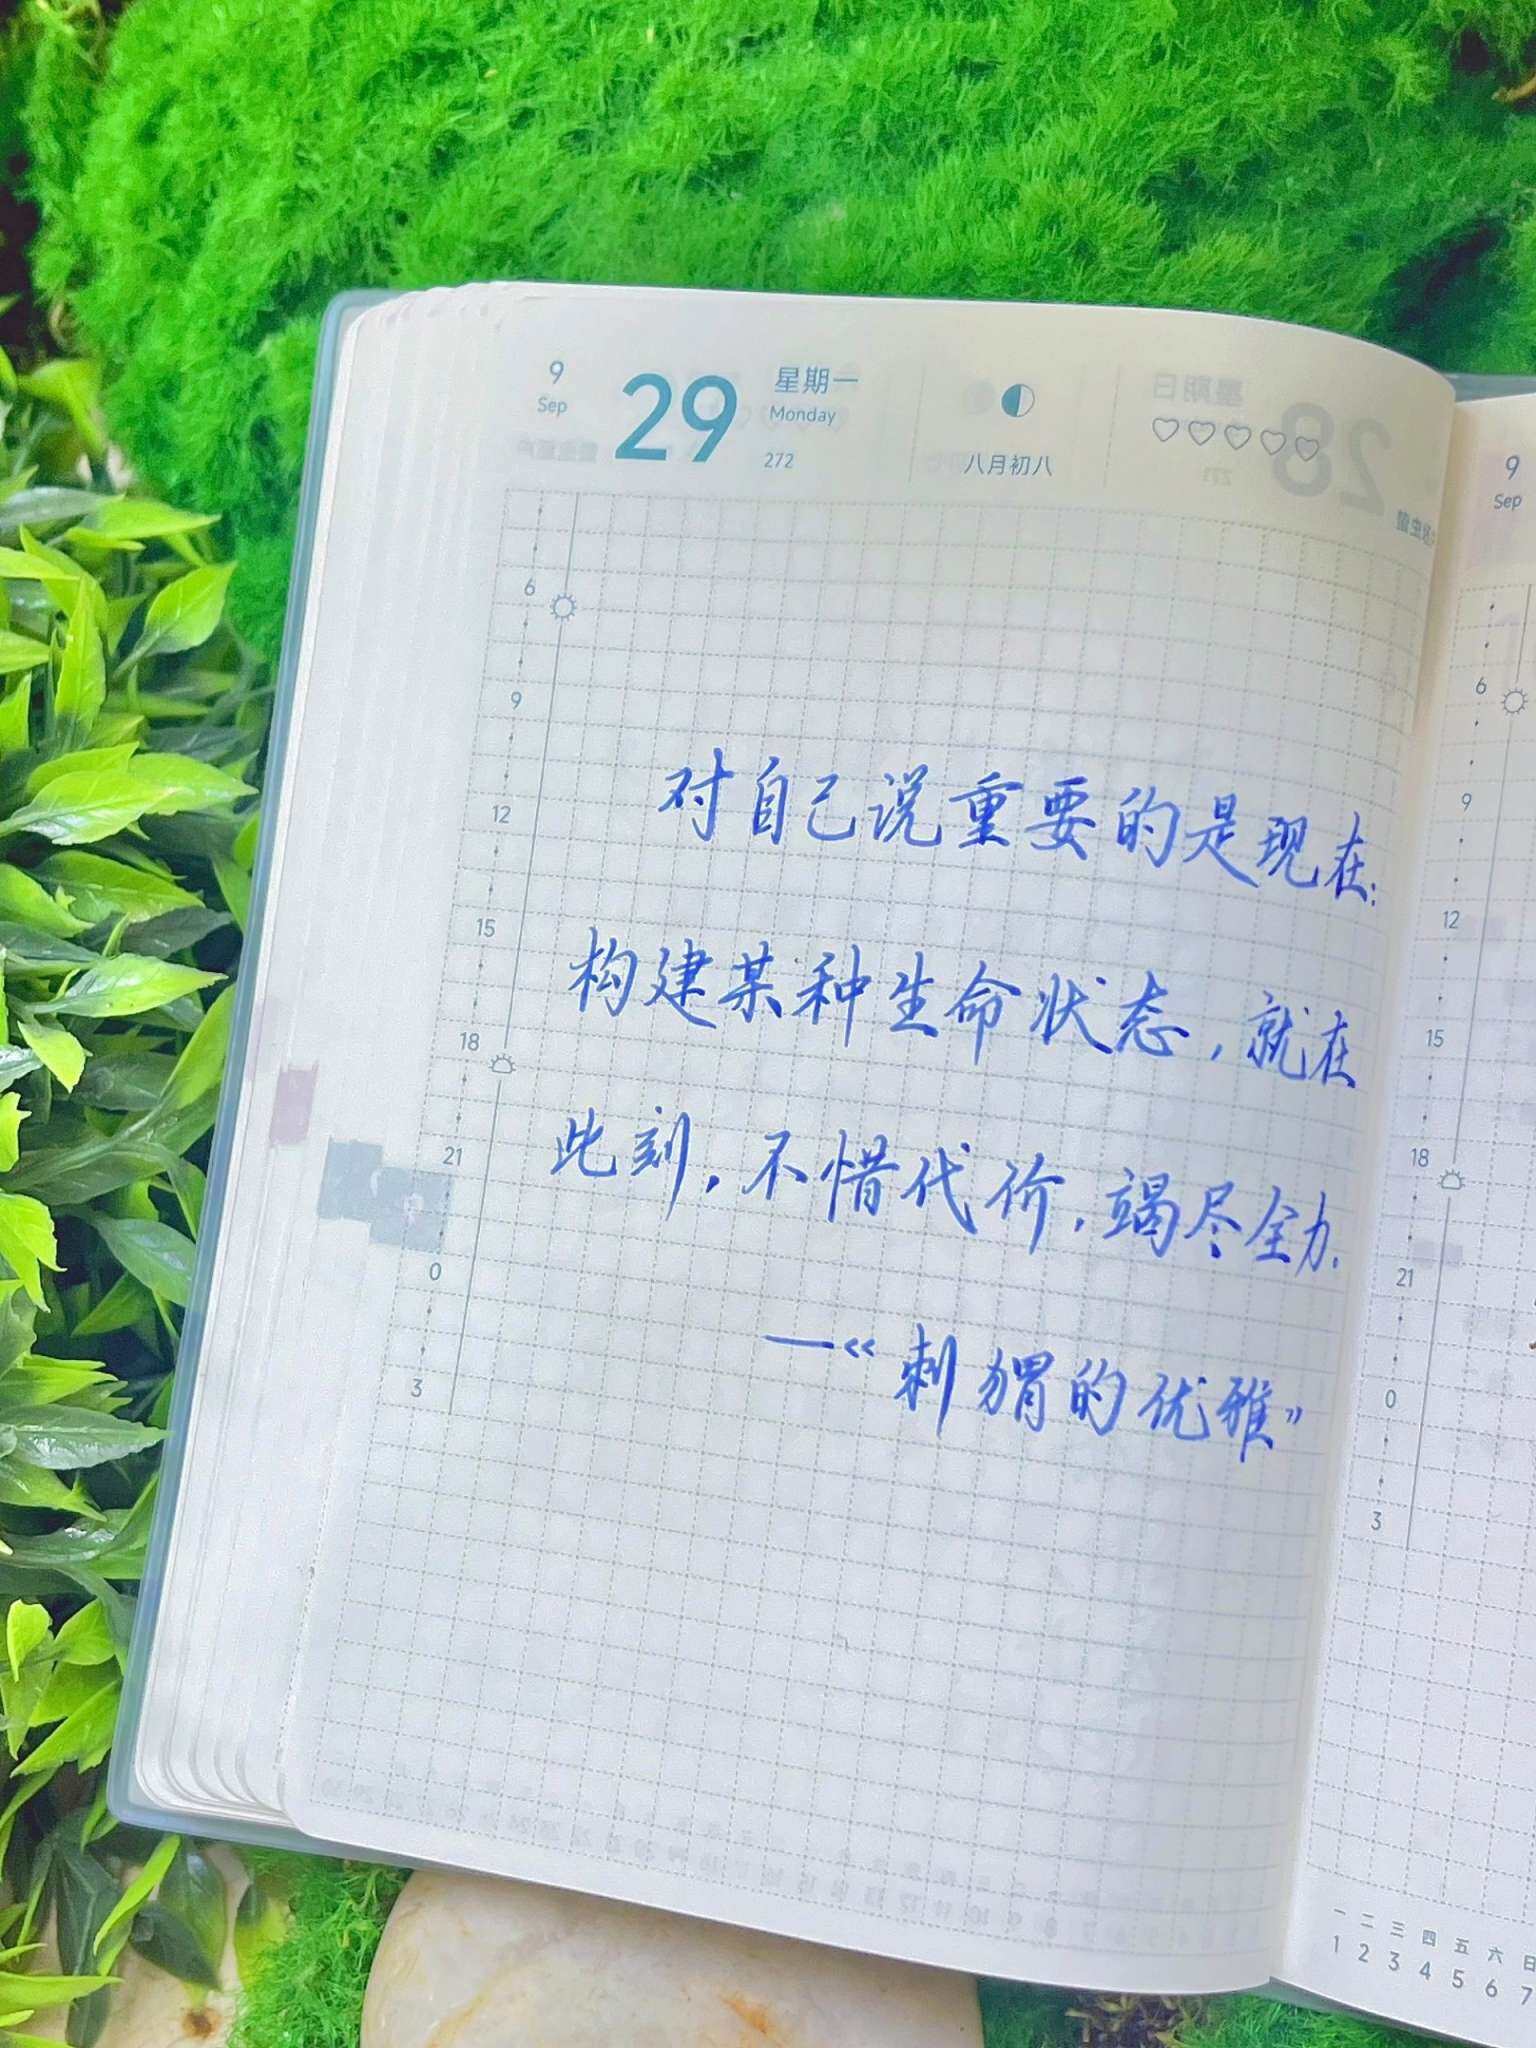 9
Sep
29
星期一
Monday
272
八月初八
6
9
12
15
18
21
0
3
对自己说重要的是现在:
构建某种生命状态,就在
此刻,不惜代价,竭尽全力.
—《刺猬的优雅》
9
Sep
6
9
12
15
18
21
0
3
一 二 三 四 五 六 日
1 2 3 4 5 6 7